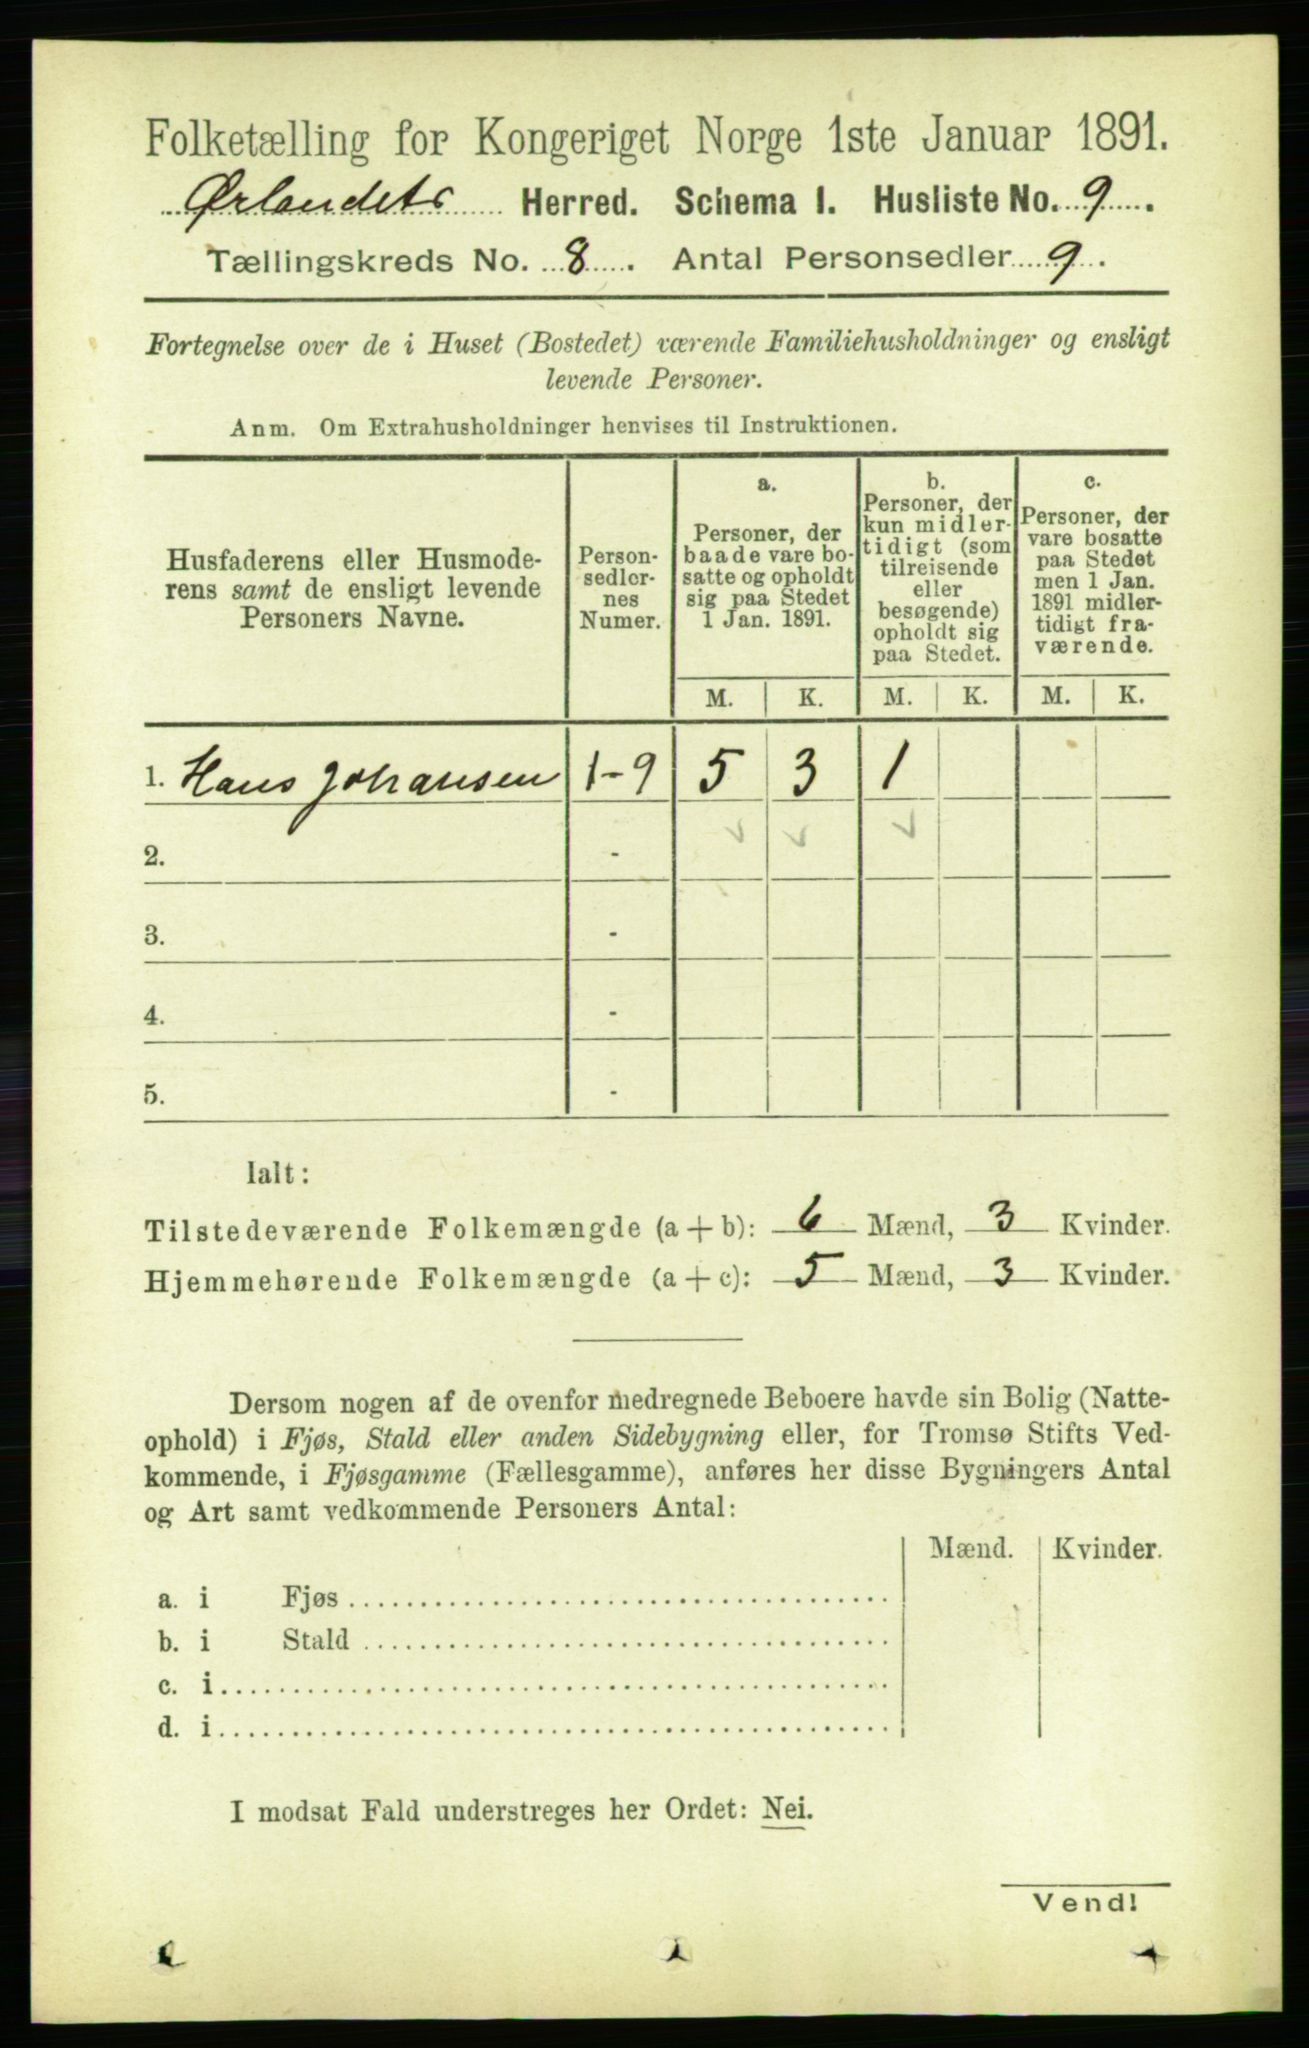 Folketælling for Kongeriget Norge 1ste Januar 1891.
Ørlandets Herred. Schema 1. Husliste No. 9.
Tællingskreds No. 8. Antal Personsedler 9.
Fortegnelse over de i Huset (Bostedet) værende Familiehusholdninger og ensligt
levende Personer.
Anm. Om Extrahusholdninger henvises til Instruktionen.
Husfaderens eller Husmode-
rens samt de ensligt levende
Personers Navne.
Person-
sedler-
nes
Numer.
a.
Personer, der
baade vare bo-
satte og opholdt
sig paa Stedet
1 Jan. 1891.
b.
Personer, der
kun midler-
tidigt (som
tilreisende
eller
besøgende)
opholdt sig
paa Stedet.
c.
Personer, der
vare bosatte
paa Stedet
men 1 Jan.
1891 midler-
tidigt fra-
værende.
M. K. M. K. M. K.
1. Hans Johansen 1-9 5 3 1
2. -
3. -
4. -
5. -
Ialt:
Tilstedeværende Folkemængde (a + b): 6 Mænd, 3 Kvinder.
Hjemmehørende Folkemængde (a + c): 5 Mænd, 3 Kvinder.
Dersom nogen af de ovenfor medregnede Beboere havde sin Bolig (Natte-
ophold) i Fjøs, Stald eller anden Sidebygning eller, for Tromsø Stifts Ved-
kommende, i Fjøsgamme (Fællesgamme), anføres her disse Bygningers Antal
og Art samt vedkommende Personers Antal:
Mænd. Kvinder.
a. i Fjøs
b. i Stald
c. i
d. i
I modsat Fald understreges her Ordet: Nei.
Vend!